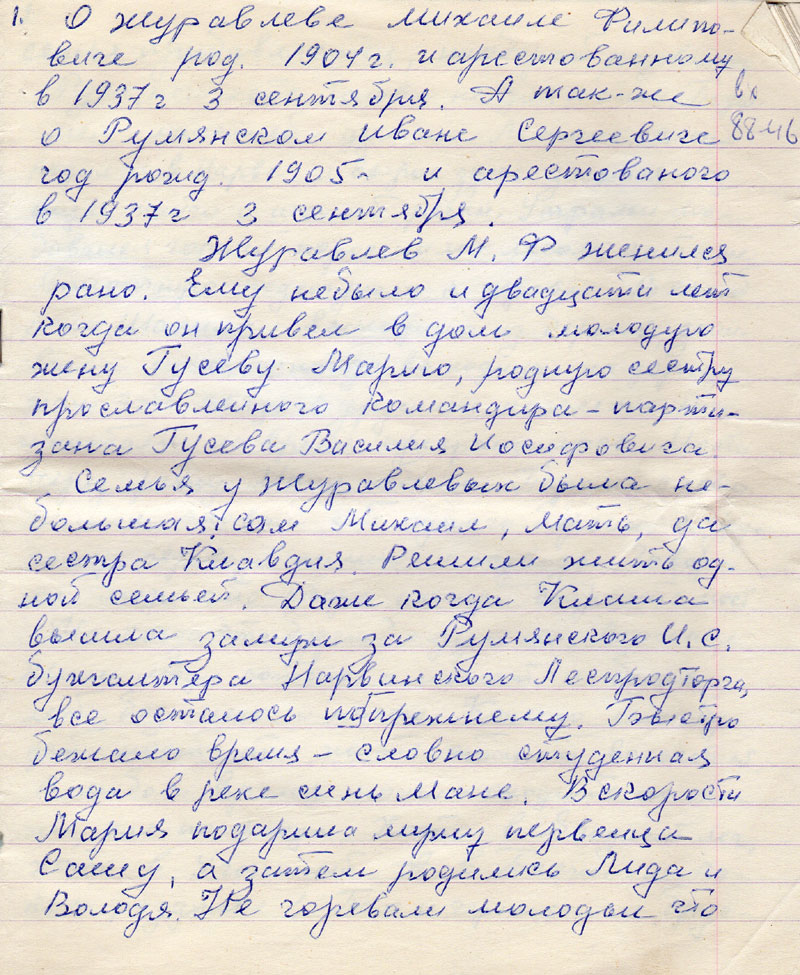 1. О Журавлеве Михаиле Филипо-
виче род. 1904 г. и арестованному
в 1937 г 3 сентября. А так-же
о Румянском Иване Сергеевиче
год рожд. 1905 - и арестованого
в 1937 г 3 сентября.
вх
8846
Журавлев М. Ф женился
рано. Ему небыло и двадцати лет
когда он привел в дом молодую
жену Гусеву Марию, родную сестру
прославленного командира-парти-
зана Гусева Василия Иосифовича.
Семья у Журавлевых была не-
большая; сам Михаил, мать, да
сестра Клавдия. Решили жить од-
ной семьей. Даже когда Клаша
вышла замуж за Румянского И.С.
бухгалтера Нарвинского Леспродторга,
все осталось попрежнему. Быстро
бежало время - словно студенная
вода в реке синь Мане. Вскорости
Мария подарила мужу первенца
Сашу, а затем родились Лида и
Володя. Не горевали молодые что